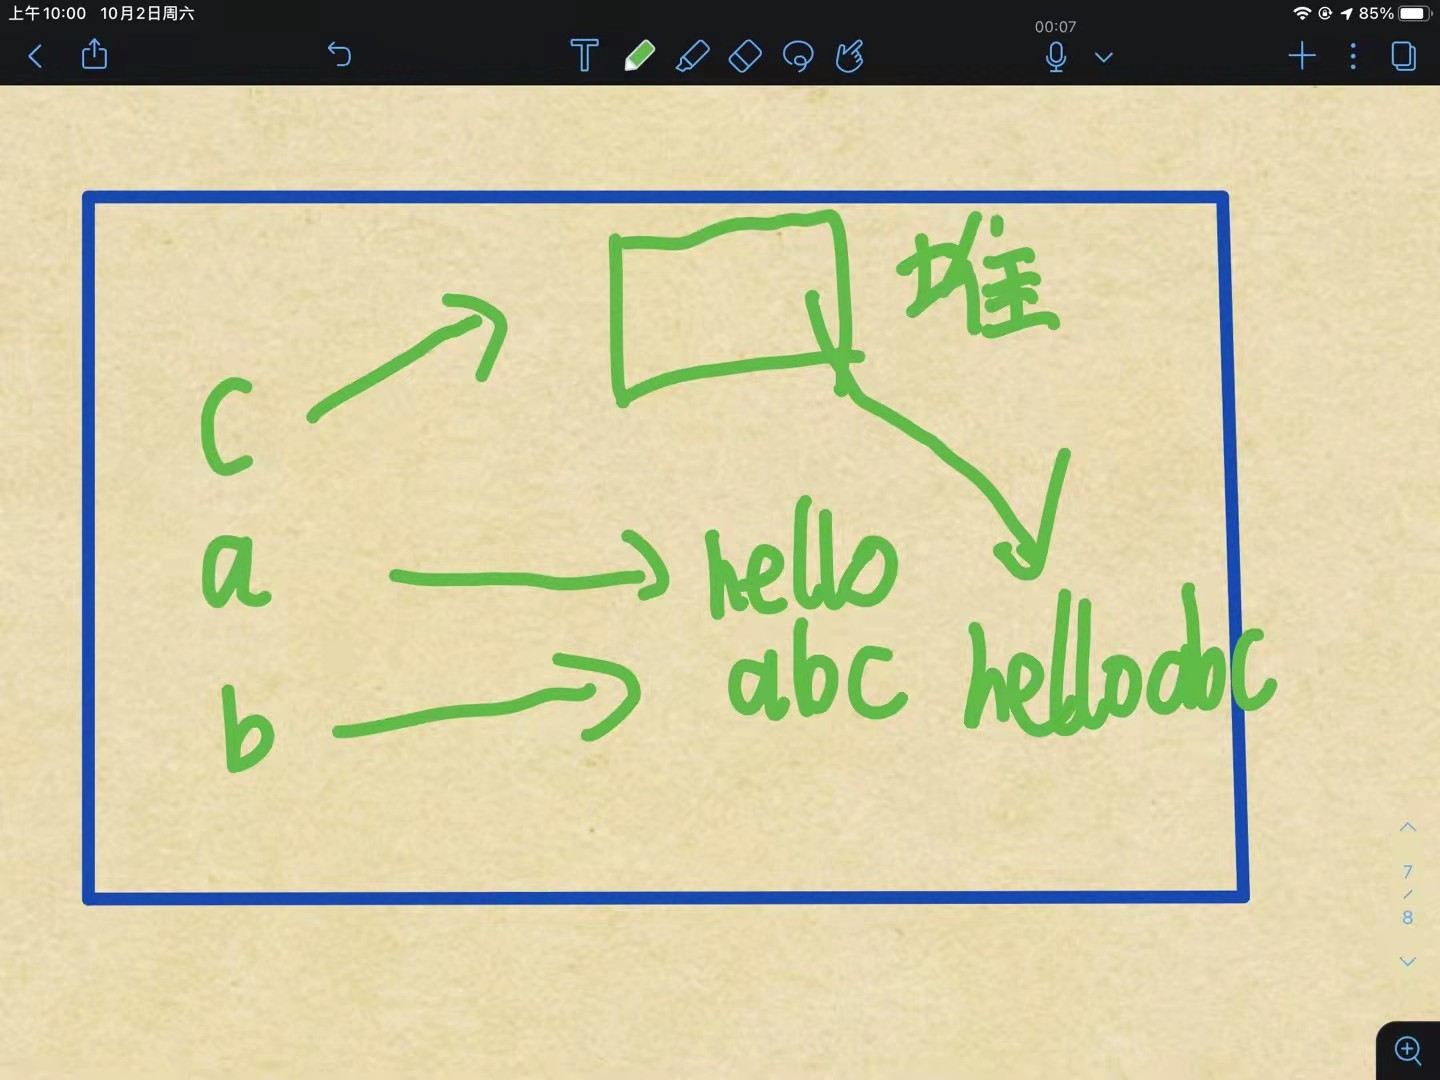 上午10:00 10月2日周六
85%
00:07
T
堆
C
a
hello
b
abc helloabc
7
/
8